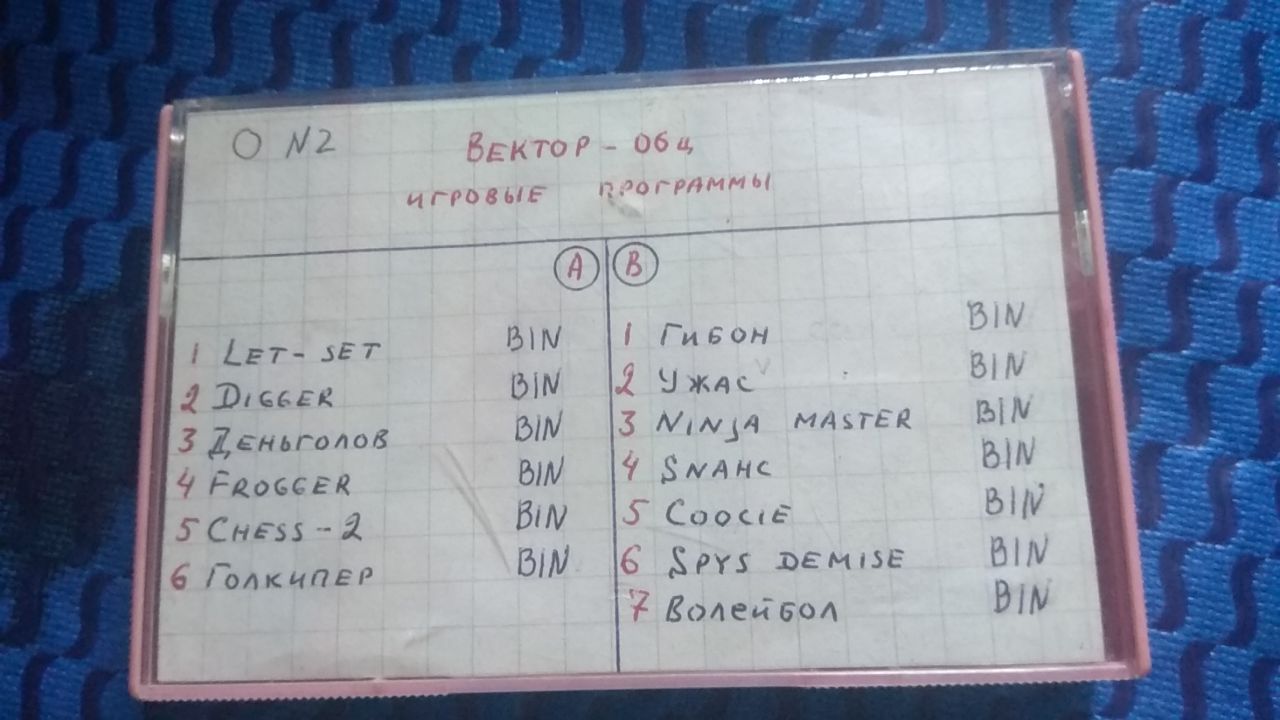 O N2 ВЕКТОР - 06ц
ИГРОВЫЕ ПРОГРАММЫ
A
1 LET-SET BIN
2 DIGGER BIN
3 ДЕНЬГОЛОВ BIN
4 FROGGER BIN
5 CHESS-2 BIN
6 ГОЛКИПЕР BIN
B
1 ГИБОН BIN
2 УЖАС BIN
3 NINJA MASTER BIN
4 SNAHC BIN
5 COOCIE BIN
6 SPYS DEMISE BIN
7 ВОЛЕЙБОЛ BIN